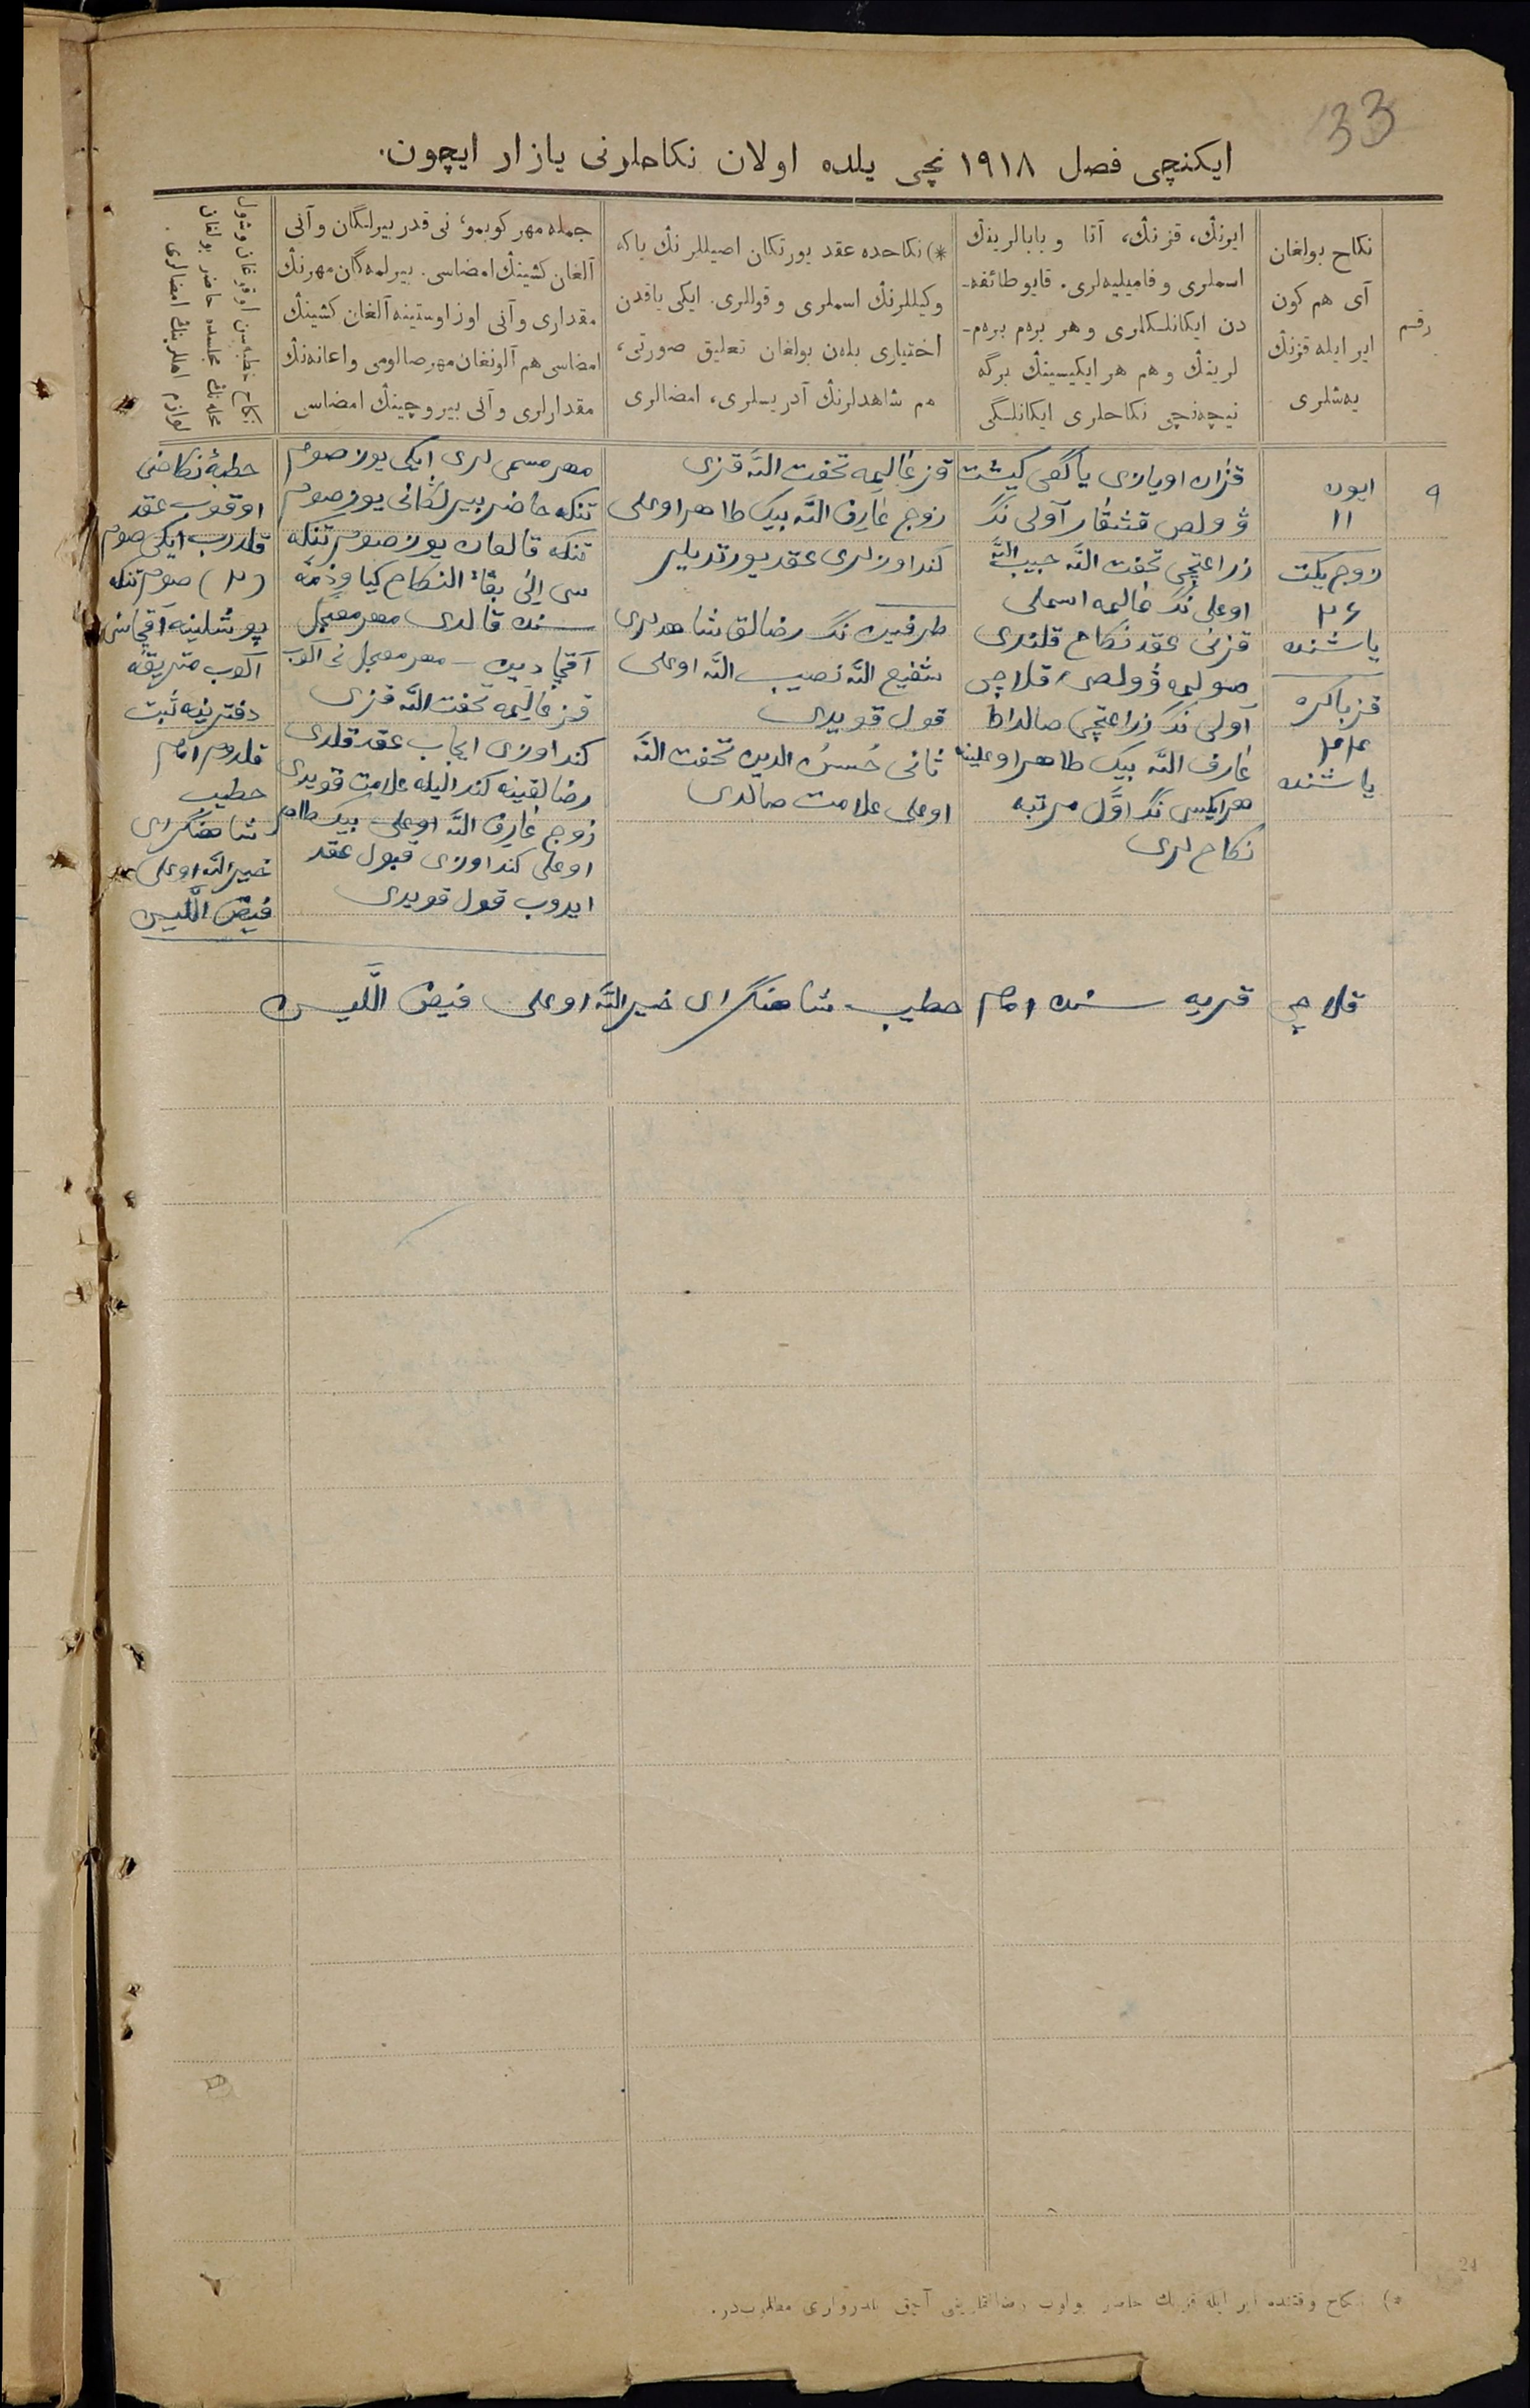 33
ايكنچی فصل ١٩١٨ نچی يلده اولان نكاحلرنی يازار ايچون.
رقم
نكاح بولغان
آی هم كون
اير ايله قزنڭ
يەشلری
ايرنڭ، قزنڭ، آتا و بابالرينڭ
اسملری و فاميليەلری. قايو طائفه‌ـ
دن ايكانلكلری و هر برەم برەم‌ـ
لرينڭ و هم هر ايكيسينڭ برگه
نيچه‌نچی نكاحلری ايكانلگی
*) نكاحده عقد يورتكان اصيللرنڭ ياكه
وكيللرنڭ اسملری و قوللری. ايكی ياقدن
اختياری بلەن بولغان تعليق صورتی،
هم شاهدلرنڭ آدريسلری، امضالری
جمله مهر كوبمو، نی قدر بيرلگان و آنی
آلغان كشينڭ امضاسی. بيرلمەگان مهرنڭ
مقداری و آنی اوز اوستينه آلغان كشينڭ
امضاسی هم آلونغان مهر صالومی و اعانه‌نڭ
مقدارلری و آنی بيروچينڭ امضاسی
نكاح خطبه‌سن اوقوغان و شول
محله‌نڭ مجلسده حاضر بولغان
لوازم اهللرينڭ امضالری.
٩
ايون
١١
زوج يكت
٢٦
ياشنده
قز باكره
ياشنده
قزان اويازی
ۋولص قشقار آولی نڭ
زراعتچی تحفت الله حبيب الله
اوغلی نڭ عاليمه اسملی
قزنی عقد نكاح قلندی
ۋولص قلاچی
آولی نڭ زراعتچی صالداط
عارف الله بيك طاهر اوغلينه
هر ايكسی نڭ اوّل مرتبه
نكاح لری
قز عاليمه تحفت الله قزی
زوج عارف الله بيك طاهر اوغلی
كند اوزلری عقد يورتديلر
طرفين نڭ رضالق شاهدلری
شفيع الله نصيب الله اوغلی
قول قويدی
ثانی حُسنُ الدين تحفت الله
اوغلی علامت صالدی
مهر مسمی لری ايكی يوز صوم
تنكه حاضر بيرلگانی يوز صوم
تنكه قالغان يوز صوم تنكه
سی الی بقاء النكاح كياو ذمه
سنده قالدی مهر معجل
آقچا دين مهر معجل نی آلوب
قز عاليمه تحفت الله قزی
كند اوزی ايجاب عقد قلدی
رضالقينه كند اليله علامت قويدی
زوج عارف الله اوغلی بيك طاهر
اوغلی كند اوزی قبول عقد
ايدوب قول قويدی
خطبۀ نكاحنی
اوقوب عقد
قلدرب ايكی صوم
(٢) صوم تنكه
پوشلينه آقچاسن
آلوب متريقه
دفترينه ثبت
قلدم امام
خطيب
شاهنگرای
خيرالله اوغلی
فيض اللّيس
قلاچی قريه سنده امام خطيب شاهنگرای خيرالله اوغلی فيض اللّيس
24
*) نكاح وقتنده اير ايله قزنڭ حاضر بولوب رضالقلرينی آچق بلدرولری مطلوبدر.